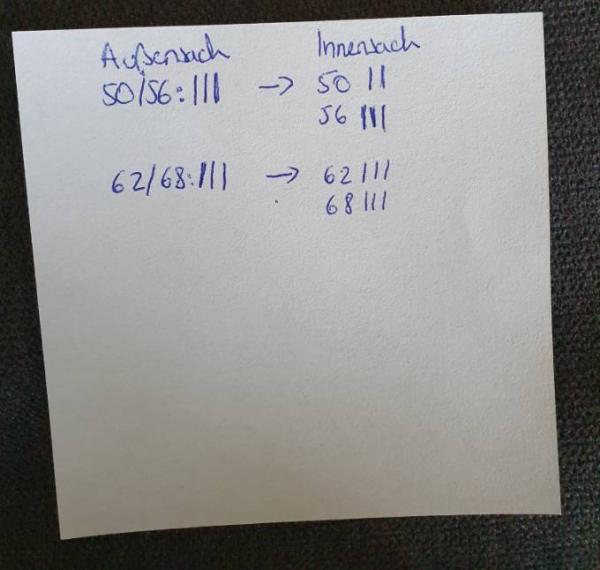 Außensack Innensack
50/56: ||| → 50 ||
56 |||
62/68: ||| → 62 |||
68 |||